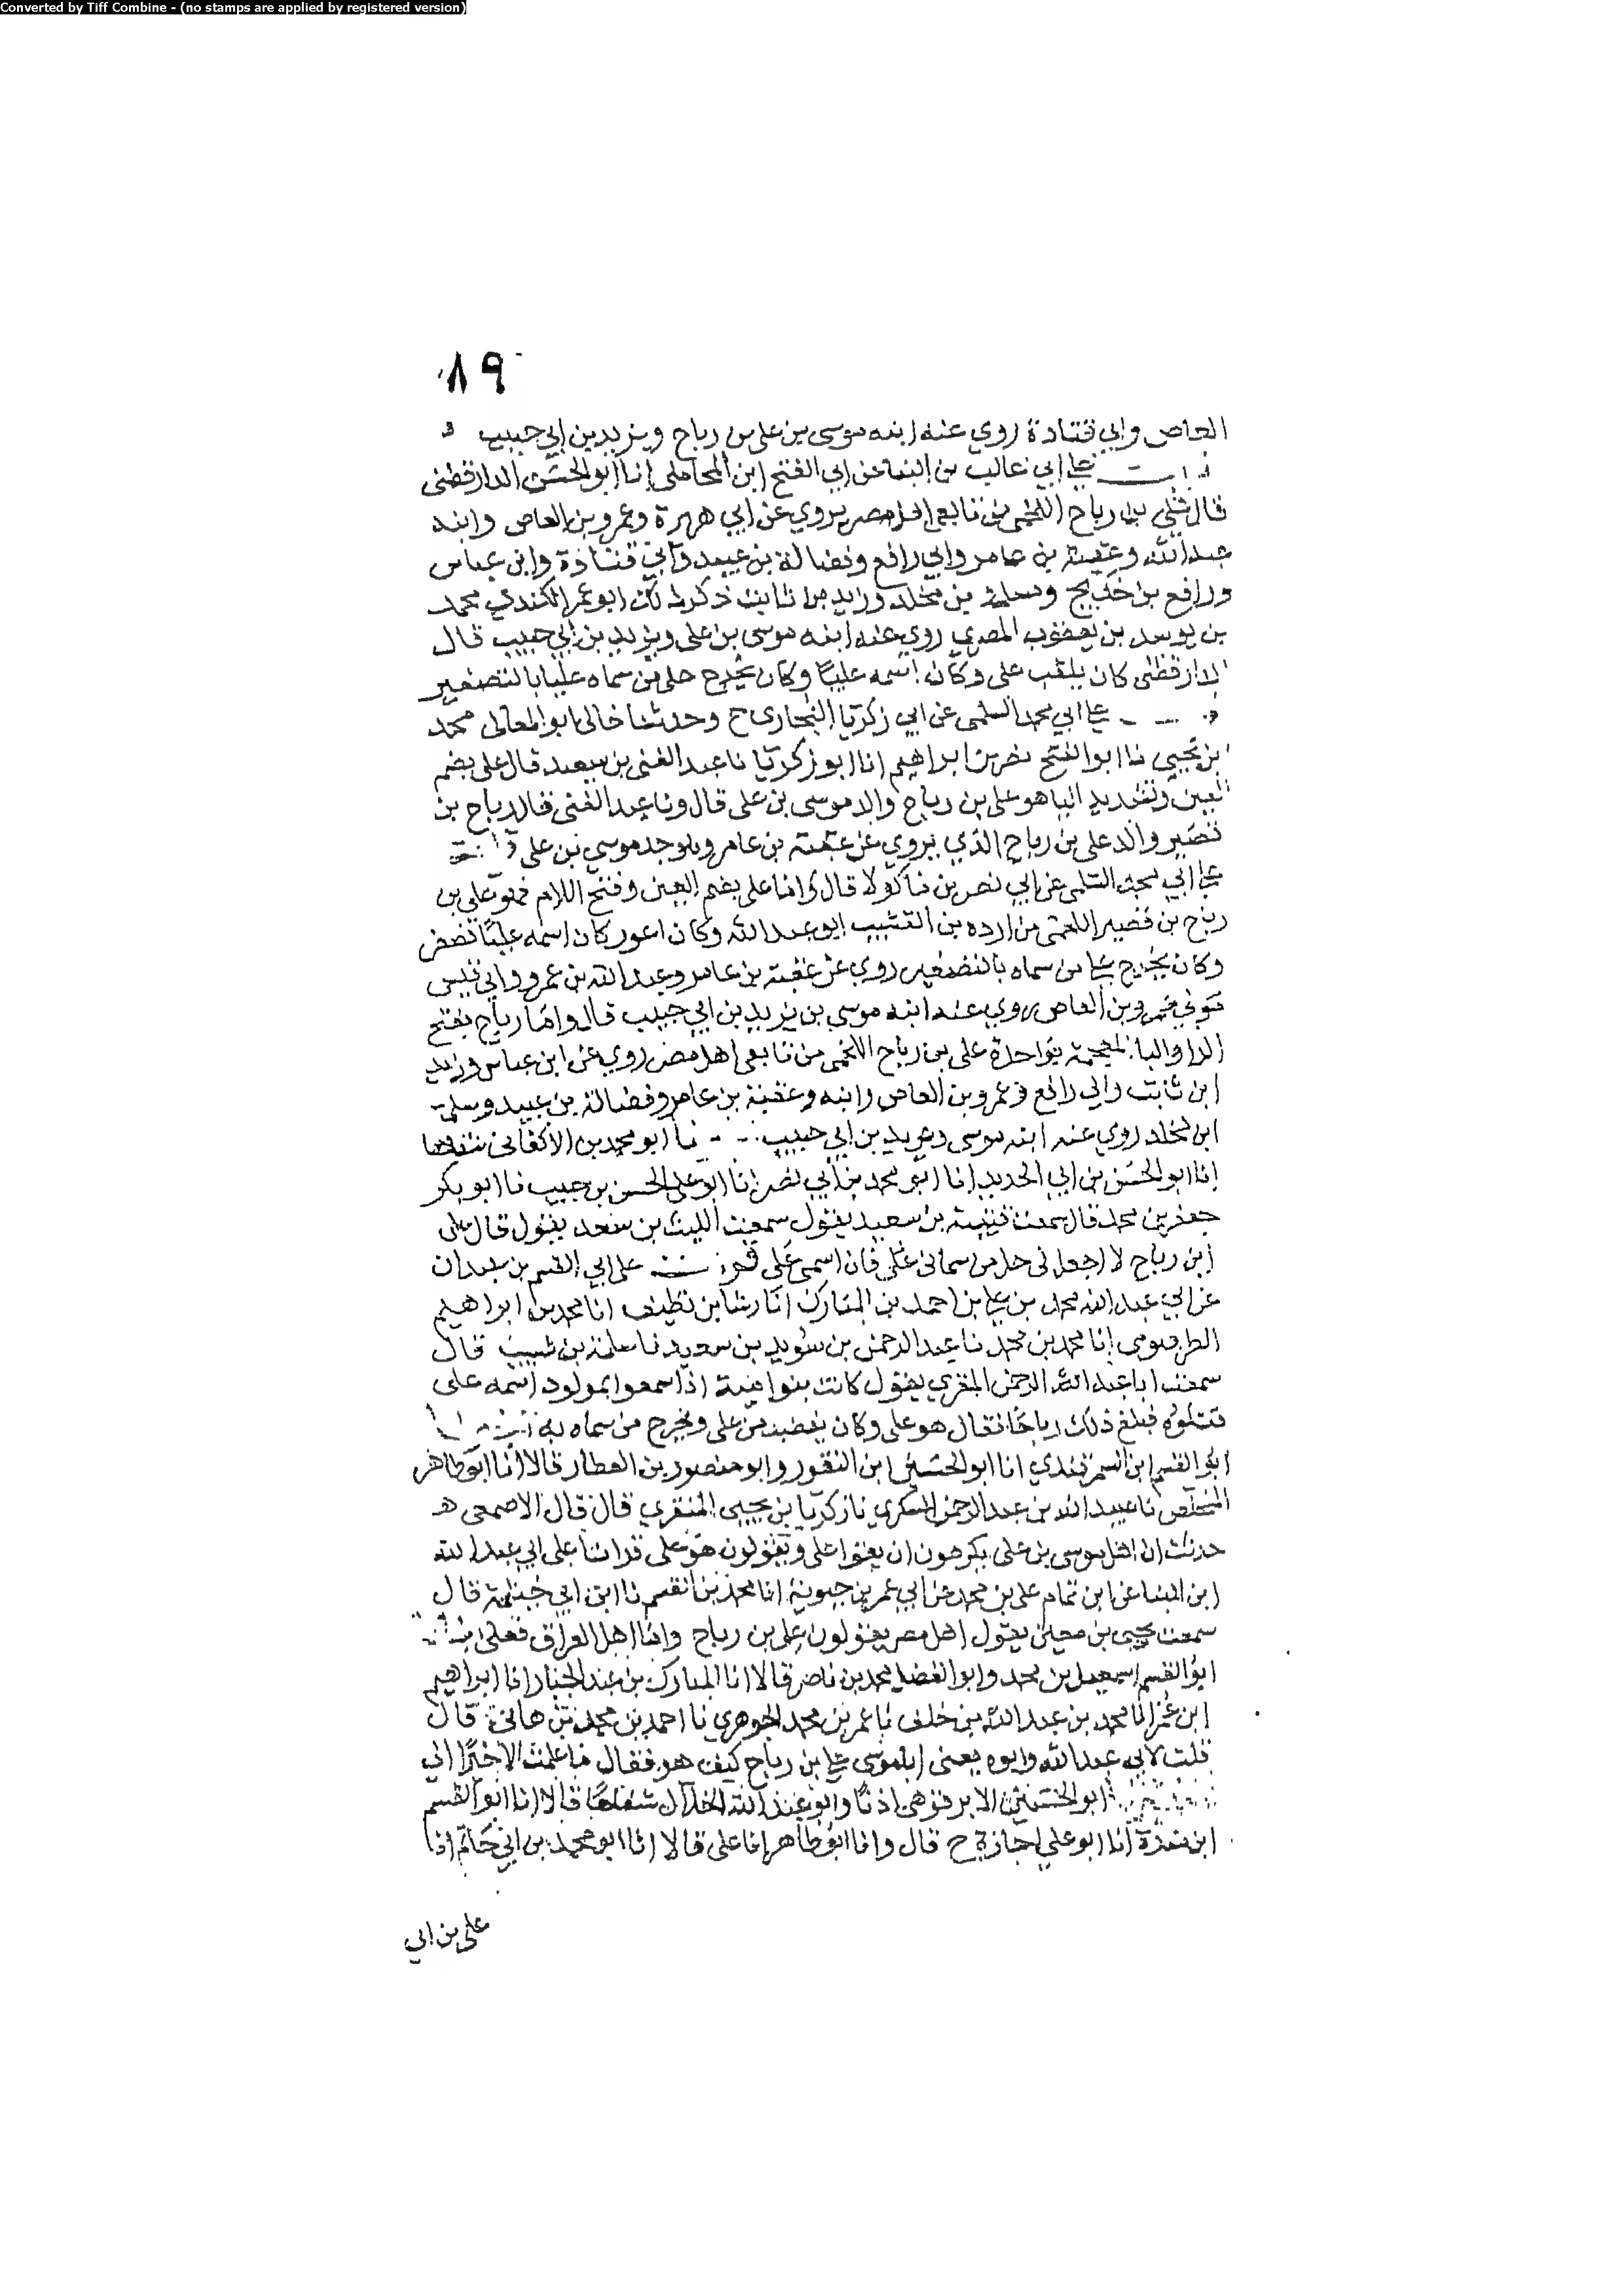 Converted by Tiff Combine - (no stamps are applied by registered version)
١٨٩
العاص وابي قتادة روي عنه ابنه موسى بن على بن رباح ويزيد بن ابي حبيب
على ابي غالب بن البنا عن ابي الفتح ابن المحاملى انا ابو الحسن الدارقطنى
قال على بن رباح اللخمى من تابعى اهل مصر يروي عن ابي هريرة وعمرو بن العاص وابنه
عبد الله وعقبة بن عامر وابي رافع وفضالة بن عبيد وابي قتادة وابن عباس
ورافع بن خديج ومسلمة بن مخلد وزيد بن ثابت ذكر ذلك ابو عمر الكندي محمد
بن يوسف بن يعقوب المصري روي عنه ابنه موسى بن على ويزيد بن ابي حبيب قال
الدارقطنى كان يلقب على وكان اسمه عليا وكان يخرج على من سماه عليا بالتصغير
على ابي محمد السلمى عن ابي زكريا البخارى ح وحدثنا خالى ابو المعالى محمد
بن يحيى نا ابو الفتح نصر بن ابراهيم انا ابو زكريا نا عبد الغنى بن سعيد قال على بضم
العين وتشديد اليا هو على بن رباح والد موسى بن على قال ونا عبد الغنى قال رباح بن
قصير والد على بن رباح الذي يروي عن عقبة بن عامر وهو جد موسى بن على
على ابي محمد السلمى عن ابي نصر بن ماكولا قال واما على بضم العين وفتح اللام فهو على بن
رباح بن قصير اللخمى من ازده بن القشيب ابو عبد الله وكان اعور كان اسمه عليا فصغر
وكان يخرج على من سماه بالتصغير روي عن عقبة بن عامر وعبد الله بن عمرو وابي قيس
مولي عمرو بن العاص روي عنه ابنه موسى بن يزيد بن ابي حبيب قال واما رباح بفتح
الرا والبا المعجمة بواحدة على بن رباح اللخمى من تابعى اهل مصر روي عن ابن عباس وزيد
ابن ثابت وابي رافع وعمرو بن العاص وابنه وعقبة بن عامر وفضالة بن عبيد ومسلمة
ابن مخلد روي عنه ابنه موسى ويزيد بن ابي حبيب نا ابو محمد بن الاكفانى شفاها
انا ابو الحسن بن ابي الحديد انا ابو محمد بن ابي نصر انا ابو على الحسن بن حبيب نا ابو بكر
جعفر بن محمد قال سمعت قتيبة بن سعيد يقول سمعت الليث بن سعد يقول قال على
ابن رباح لا اجعل في حل من سمانى على فان اسمى على قرات على ابي القسم بن عبدان
عن ابي عبد الله محمد بن على بن احمد بن المبارك انا رشا بن نظيف انا محمد بن ابراهيم
الطرسوسى انا محمد بن محمد نا عبد الرحمن بن سويد بن سعيد نا سلمة بن شبيب قال
سمعت ابا عبد الله الرحمن المقري يقول كانت بنو امية اذا سمعوا بمولود اسمه على
قتلوه فبلغ ذلك رباحا فقال هو على وكان يغضب من على ويخرج من سماه به
ابو القسم ابن السمرقندي انا ابو الحسين ابن النقور وابو منصور بن العطار قالا انا ابو طاهر
المخلص نا عبيد الله بن عبد الرحمن السكري نا زكريا بن يحيى المنقري قال قال الاصمعى
حدثت ان اهل موسى بن على يكرهون ان يقولوا على ويقولون هو على قراتنا على ابي عبد الله
ابن البنا عن ابن تمام على بن محمد عن ابي عمر بن حيوية انا محمد بن القسم نا ابن ابي خيثمة قال
سمعت يحيى بن معين يقول اهل مصر يقولون على بن رباح واما اهل العراق فعلى
ابو القسم اسمعيل بن محمد وابو الفضل محمد بن ناصر قالا انا المبارك بن عبد الجبار انا ابراهيم
ابن عمر انا محمد بن عبد الله بن خلف نا عمر بن محمد الجوهري نا احمد بن محمد بن هانى قال
قلت لابي عبد الله وابوه يعنى ابا موسى على بن رباح كيف هو فقال ما علمت الا خيرا
ابو الحسين الابرقوهى اذنا وابو عبد الله الخلال شفاها قالا انا ابو القسم
ابن مندة انا ابو على اجازة ح قال وانا ابو طاهر انا على قالا انا ابو محمد بن ابي حاتم انا
على بن ابي